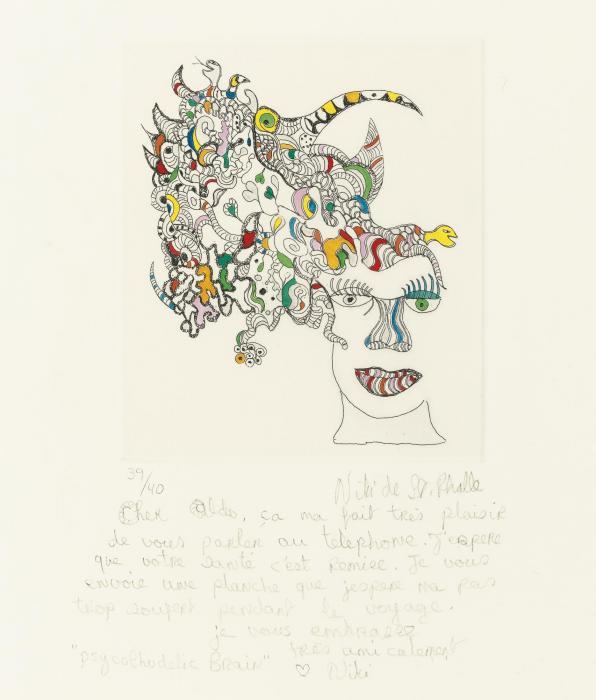 39/40
Niki de St. Phalle
Cher Aldo, ça ma fait très plaisir
de vous parler au telephone. J'espere
que votre santé c'est remise. Je vous
envoie une planche que jespere na pas
trop soufert pendant le voyage.
je vous embrasse
"psycolhodelic Brain" très amicalement
♡ Niki